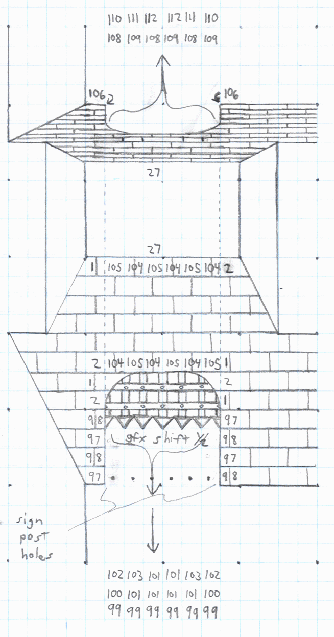 110 111 112 112 111 110
108 109 108 109 108 109
106 2
106
27
27
1 105 104 105 104 105 104 2
2 104 105 104 105 104 105 1
1 2
2 1
98 97
97 98
98 97
97 98
gfx shift 1/2
sign
post
holes
102 103 101 101 103 102
100 101 101 101 101 100
99 99 99 99 99 99